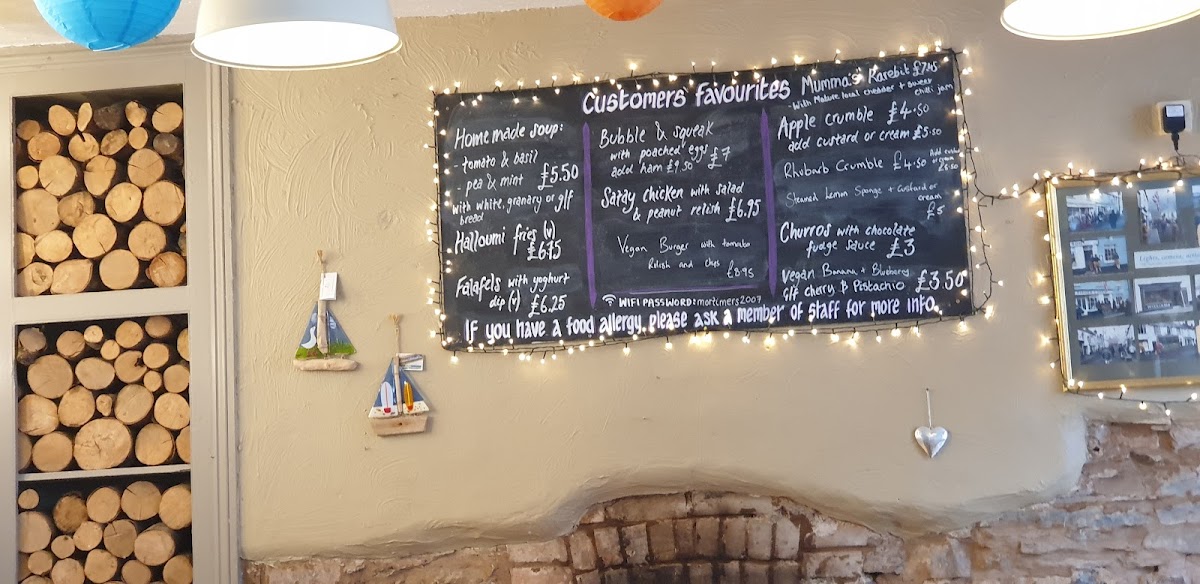 Customers' favourites
Homemade soup:
- tomato & basil
- pea & mint £5.50
with white, granary or g/f
bread
Halloumi fries (v)
£6.75
Falafels with yoghurt
dip (v) £6.25
Bubble & squeak
with poached eggs £7
add ham £9.50
Satay chicken with salad
& peanut relish £6.95
Vegan Burger with tomato
Relish and chips
£8.95
WIFI PASSWORD: mortimers2007
Mumma's Rarebit £7.45
- With Mature local cheddar + sweet
chilli jam
Apple crumble £4.50
add custard or cream £5.50
Rhubarb Crumble £4.50 Add custard
or cream
£5.50
Steamed Lemon Sponge + custard or
cream
£5
Churros with chocolate
fudge sauce £3
Vegan Banana & Blueberry
g/f cherry & Pistachio £3.50
If you have a food allergy, please ask a member of staff for more info.